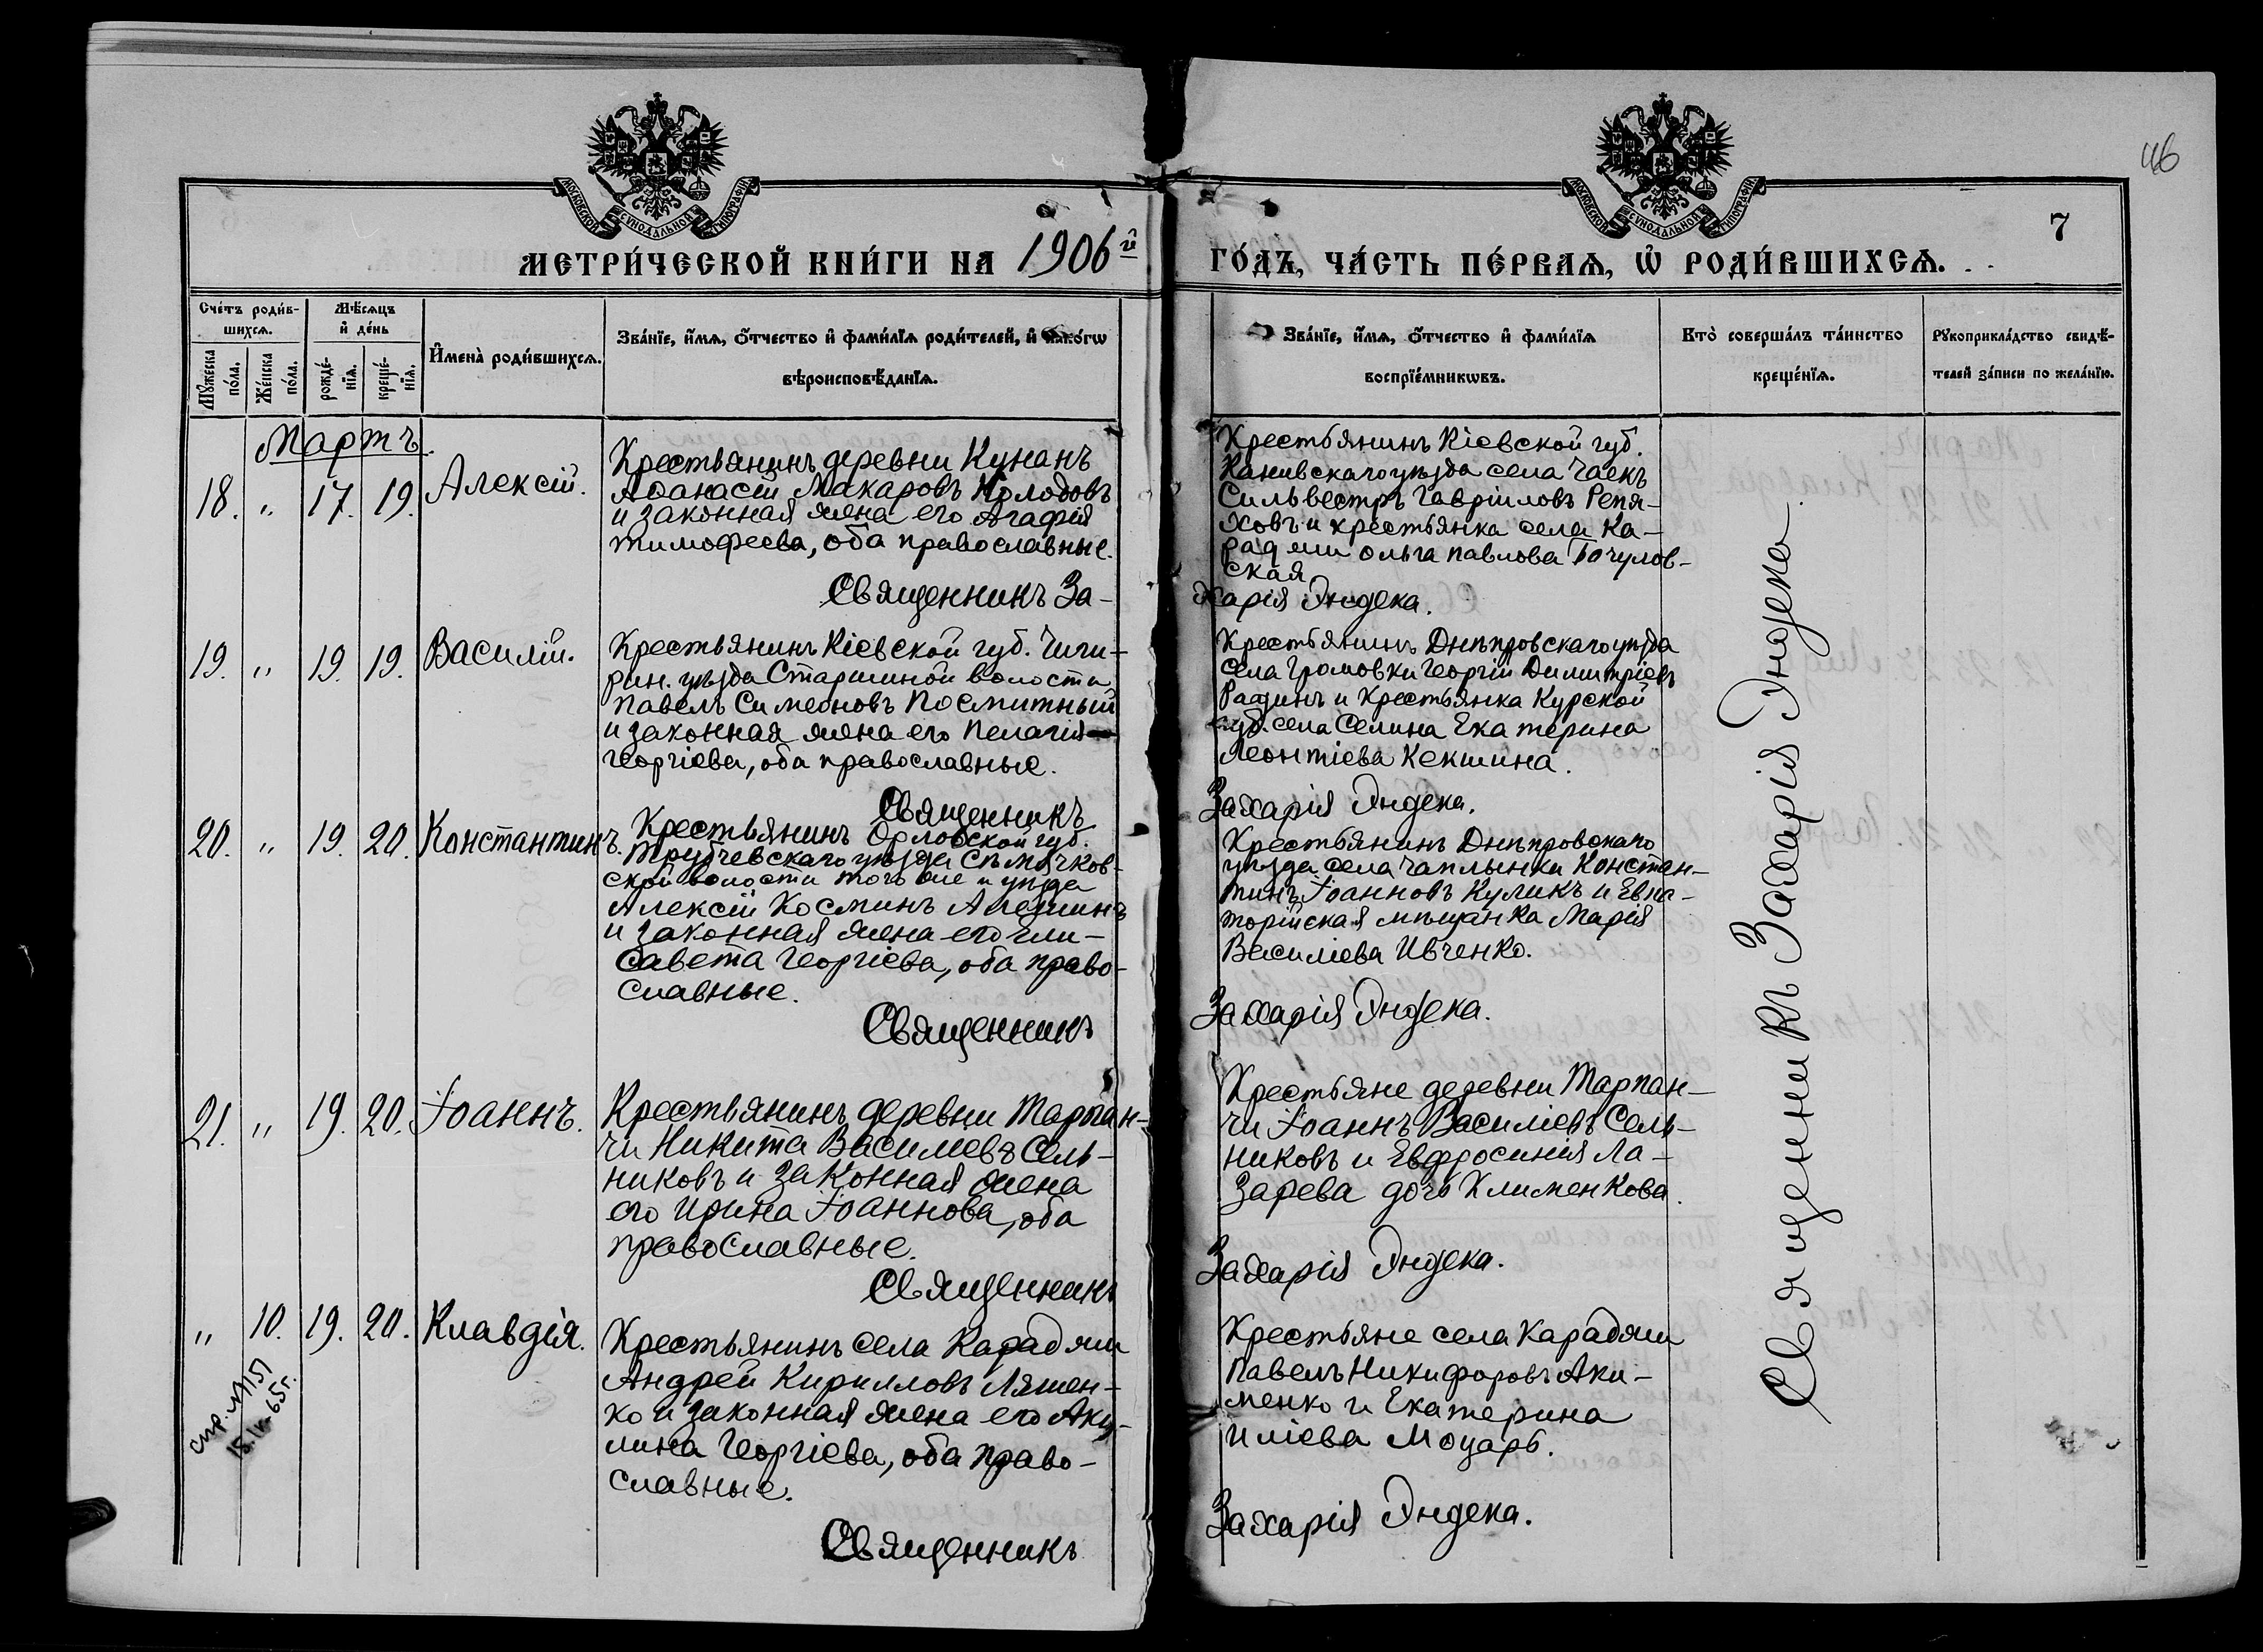 46
7
МОСКОВСКОЙ СѴНОДАЛЬНОЙ ТИПОГРАФІИ
МОСКОВСКОЙ СѴНОДАЛЬНОЙ ТИПОГРАФІИ
МЕТРИ́ЧЕСКОЙ КНИ́ГИ НА 1906й
ГО́ДЪ, ЧА́СТЬ ПЕ́РВАЯ, Ѡ҆ РОДИ́ВШИХСѦ.
Сче́тъ роди́в-
шихсѧ.
Мꙋ́жеска
по́ла.
Же́нска
по́ла.
Мѣ́сѧцъ
и҆ де́нь
рожде́-
нїѧ.
креще́-
нїѧ.
И҆мена̀ роди́вшихсѧ.
Зва́нїе, и҆́мѧ, ѻ҆́тчество и҆ фами́лїѧ роди́телей, и҆ како́гѡ
вѣроисповѣ́данїѧ.
Зва́нїе, и҆́мѧ, ѻ҆́тчество и҆ фами́лїѧ
воспрїе́мникѡвъ.
Кто̀ соверша́лъ та́инство
креще́нїѧ.
Рꙋкоприкла́дство свидѣ́-
телей за́писи по жела́нїю.
Мартъ.
18. " 17. 19. Алексій.
Крестьянинъ деревни Кунанъ
Аѳанасій Макаровъ Колодовъ
и законная жена его Агафія
Тимофеева, оба православные.
Священникъ За-
Крестьянинъ Кіевской губ.
Каневскаго уѣзда села Чаекъ
Сильвестръ Гавріиловъ Репя-
ховъ и крестьянка села Ка-
раджи Ольга Павлова Бочулов-
ская
харія Индека.
19. " 19. 19. Василій.
Крестьянинъ Кіевской губ. Чиги-
рин. уѣзда Старшиной волости
Павелъ Симеоновъ Посмитный
и законная жена его Пелагія
Георгіева, оба православные.
Священникъ
Крестьянинъ Днѣпровскаго уѣзда
села Громовки Георгій Димитріевъ
Радинъ и Крестьянка Курской
губ. села Селина Екатерина
Леонтіева Кекшина.
Захарія Индека.
20. " 19. 20. Константинъ.
Крестьянинъ Орловской губ.
Трубчевскаго уѣзда Сѣмячков-
ской волости того же и уѣзда
Алексій Косминъ Алешинъ
и законная жена его Ели-
савета Георгіева, оба право-
славные.
Священникъ
Крестьянинъ Днѣпровскаго
уѣзда села Чаплынки Констан-
тинъ Іоанновъ Куликъ и Евпа-
торійская мѣщанка Марія
Василіева Ивченко.
Захарія Индека.
21. " 19. 20. Іоаннъ.
Крестьянинъ деревни Тарпан-
чи Никита Василіевъ Сель-
никовъ и законная жена
его Ирина Іоаннова, оба
православные.
Священникъ
Крестьяне деревни Тарпан-
чи Іоаннъ Василіевъ Сель-
никовъ и Евфросинія Ла-
зарева дочь Клименкова.
Захарія Индека.
" 10. 19. 20. Клавдія.
Крестьянинъ села Караджи
Андрей Кирилловъ Ляшен-
ко и законная жена его Аку-
лина Георгіева, оба право-
славные.
Священникъ
Крестьяне села Караджи
Павелъ Никифоровъ Аки-
менко и Екатерина
Иліева Моцарь.
Захарія Индека.
Священникъ Захарія Индека.